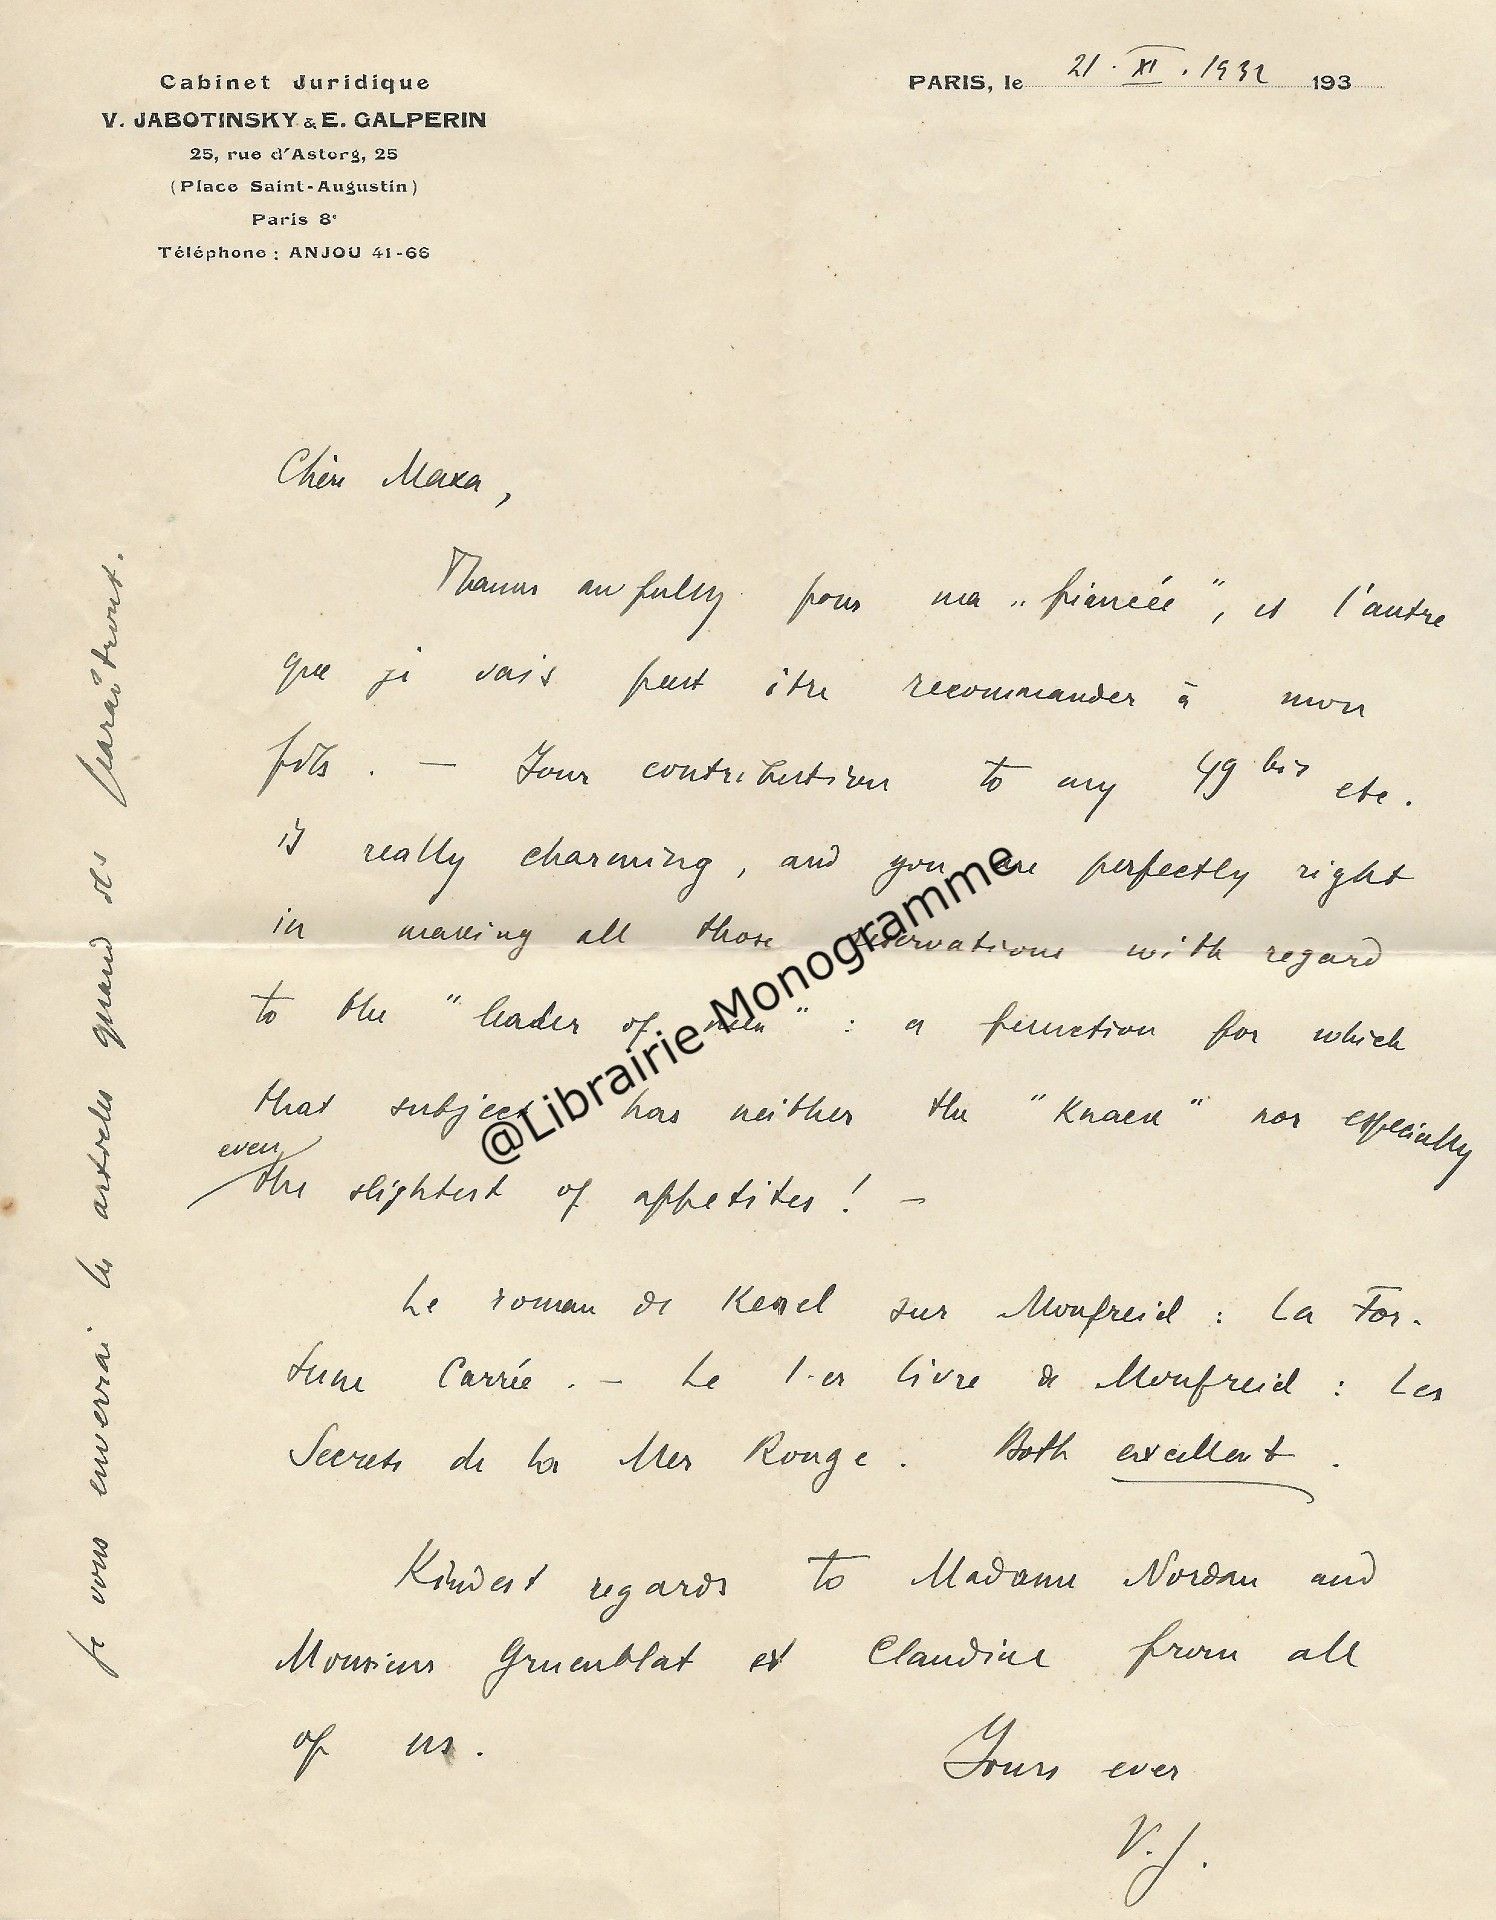 Cabinet Juridique
V. JABOTINSKY & E. GALPERIN
25, rue d'Astorg, 25
(Place Saint-Augustin)
Paris 8e
Téléphone : ANJOU 41-66
PARIS, le 21. XI. 1932 193
Chère Maxa,
Thanks awfully pour ma „fiancée", et l'autre
que je vais peut être recommander à mon
fils. — Your contribution to my 49 bis etc.
is really charming, and you are perfectly right
in making all those reservations with regard
to the "leader of men" : a function for which
that subject has neither the "knack" nor especially
even the slightest of appetites ! —
Le roman de Kessel sur Monfreid : La For-
tune Carrée. — Le 1-er livre de Monfreid : Les
Secrets de la Mer Rouge. Both excellent.
Kindest regards to Madame Nordau and
Monsieur Gruenblat et Claudine from all
of us.
Yours ever
V. J.
Je vous enverrai les articles quand ils paraîtront.
@Librairie Monogramme